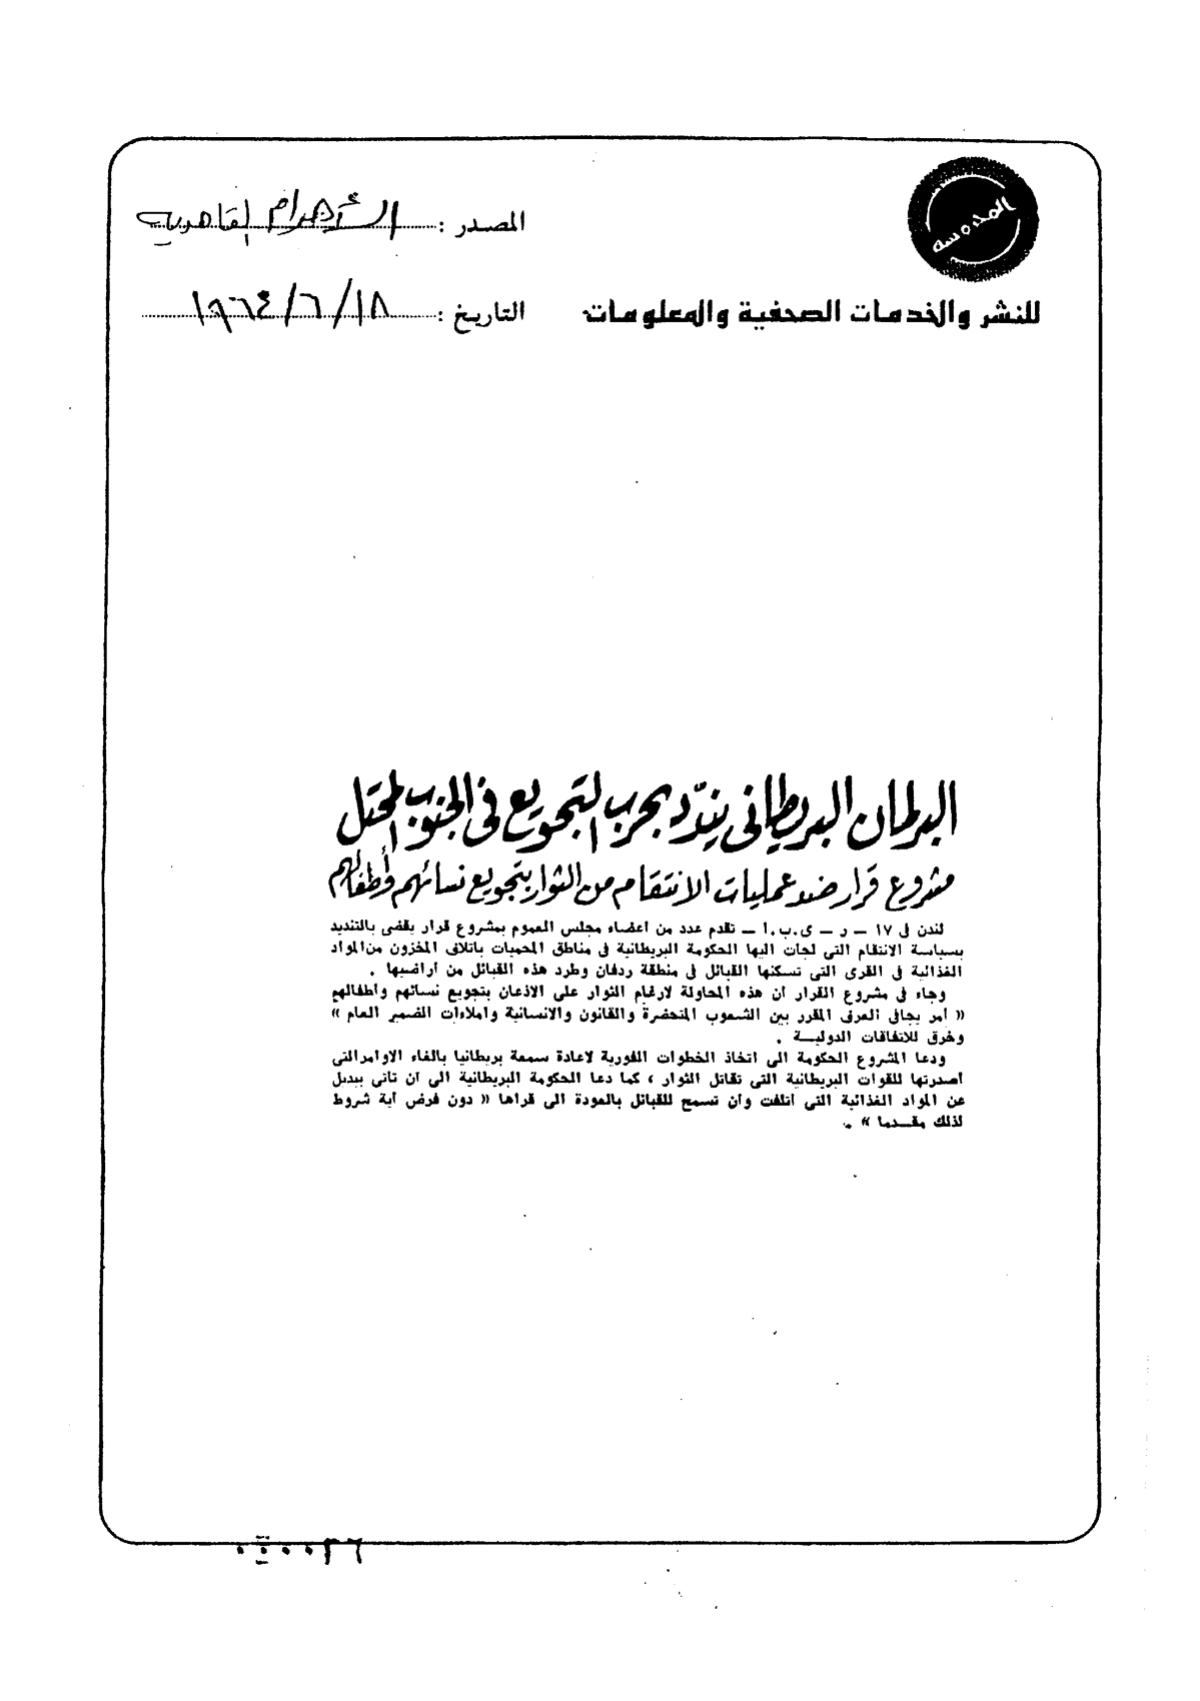 المحروسة
المصدر : الأهرام القاهرية
للنشر والخدمات الصحفية والمعلومات
التاريخ : ١٨/٦/١٩٦٤
البرلمان البريطانى يندّد بحرب التجويع فى الجنوب المحتل
مشروع قرار ضد عمليات الانتقام من الثوار بتجويع نسائهم وأطفالهم
لندن فى ١٧ ـ ر ـ ى.ب.أ ـ تقدم عدد من أعضاء مجلس العموم بمشروع قرار يقضى بالتنديد
بسياسة الانتقام التى لجأت اليها الحكومة البريطانية فى مناطق المحميات باتلاف المخزون من المواد
الغذائية فى القرى التى تسكنها القبائل فى منطقة ردفان وطرد هذه القبائل من أراضيها .
وجاء فى مشروع القرار ان هذه المحاولة لارغام الثوار على الاذعان بتجويع نسائهم وأطفالهم
« أمر يجافى العرف المقرر بين الشعوب المتحضرة والقانون والانسانية واملاءات الضمير العام »
وخرق للاتفاقات الدوليـة .
ودعا المشروع الحكومة الى اتخاذ الخطوات الفورية لاعادة سمعة بريطانيا بالغاء الاوامر التى
أصدرتها للقوات البريطانية التى تقاتل الثوار ، كما دعا الحكومة البريطانية الى ان تأتى ببديل
عن المواد الغذائية التى أتلفت وان تسمح للقبائل بالعودة الى قراها « دون فرض أية شروط
لذلك مقـدما » .